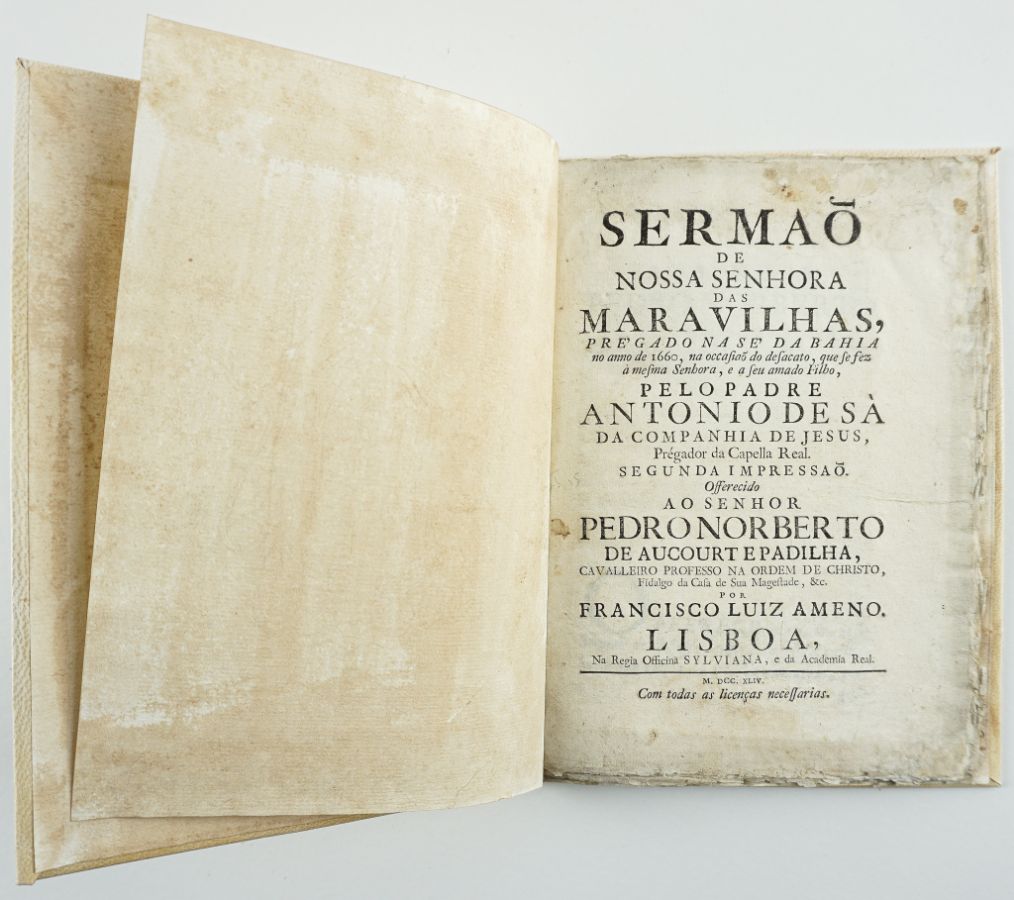 SERMAÕ
DE
NOSSA SENHORA
DAS
MARAVILHAS,
PRE'GADO NA SE' DA BAHIA
no anno de 1660, na occaſiaõ do deſacato, que ſe fez
à meſma Senhora, e a ſeu amado Filho,
PELO PADRE
ANTONIO DE SÀ
DA COMPANHIA DE JESUS,
Prégador da Capella Real.
SEGUNDA IMPRESSAÕ.
Offerecido
AO SENHOR
PEDRO NORBERTO
DE AUCOURT E PADILHA,
CAVALLEIRO PROFESSO NA ORDEM DE CHRISTO,
Fidalgo da Caſa de Sua Mageſtade, &c.
POR
FRANCISCO LUIZ AMENO.
LISBOA,
Na Regia Officina SYLVIANA, e da Academia Real.
M. DCC. XLIV.
Com todas as licenças neceſſarias.